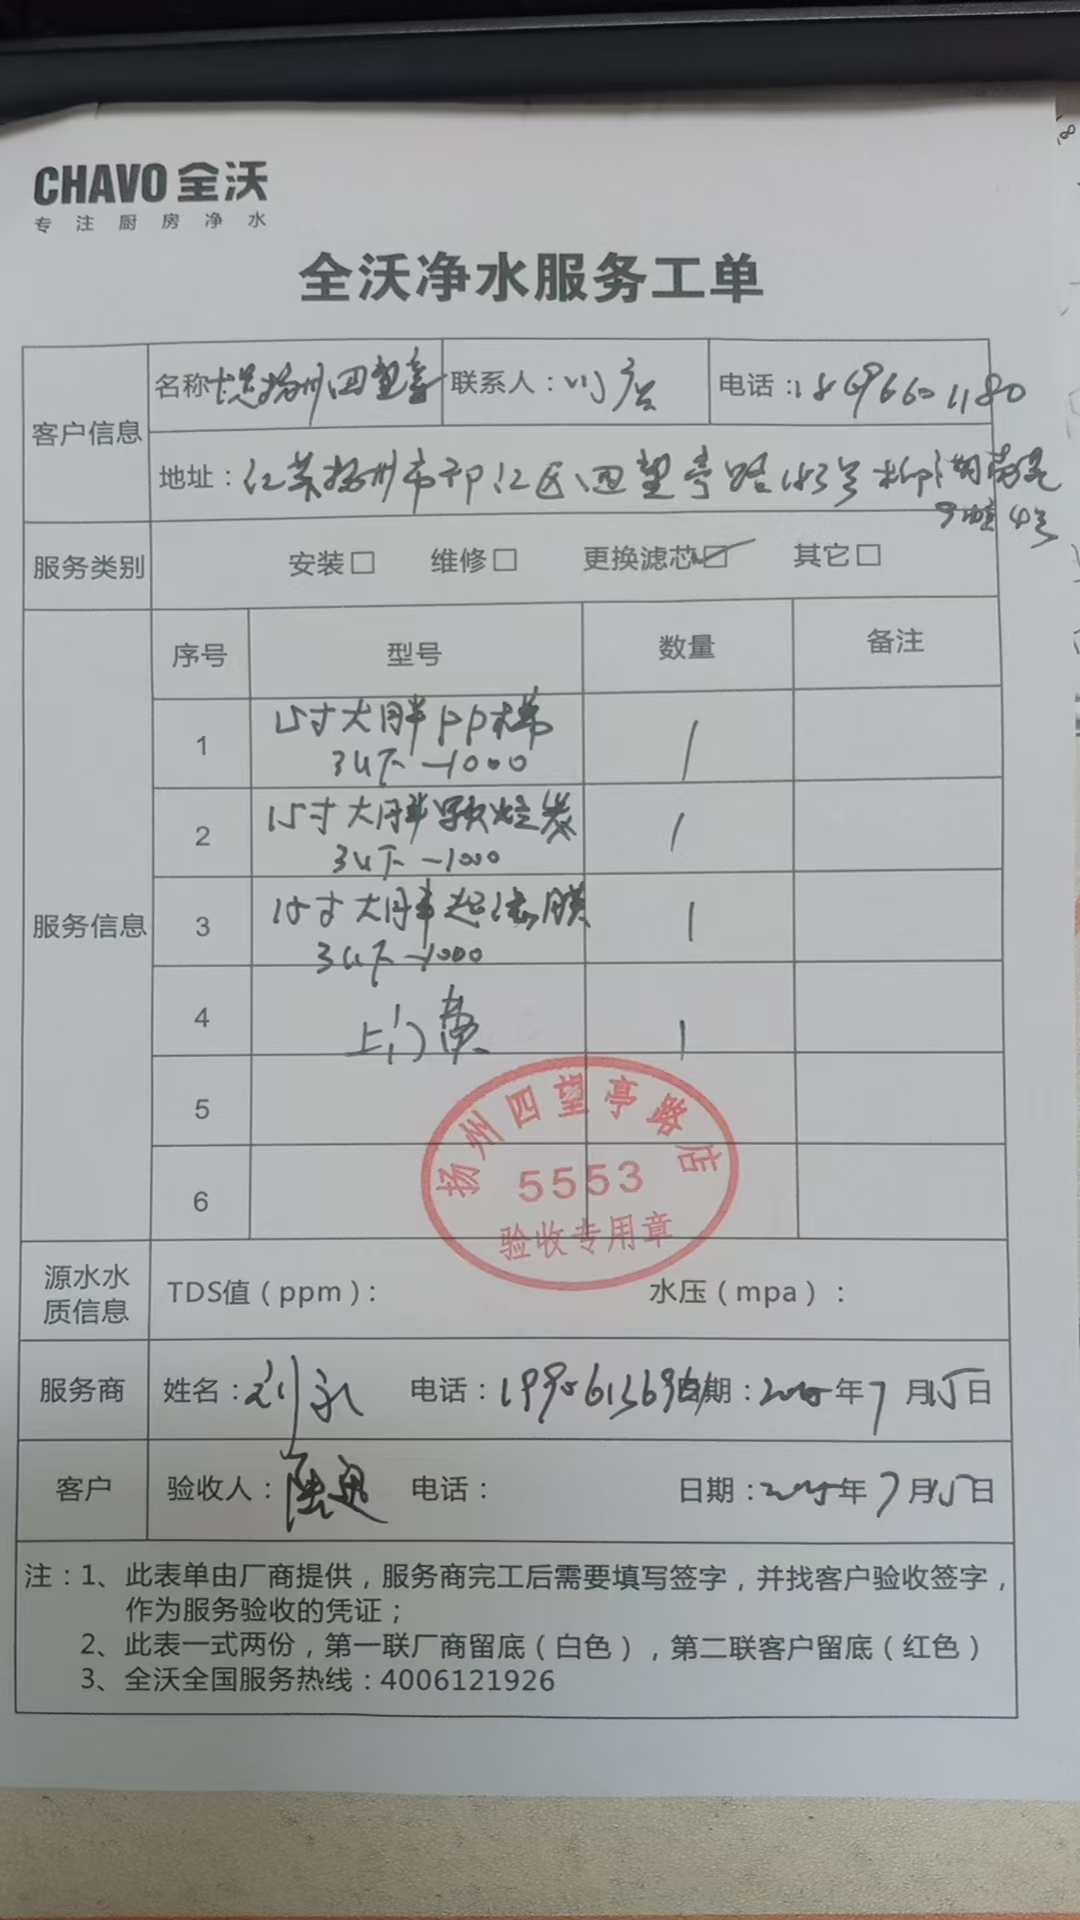 CHAVO 全沃
专注厨房净水
全沃净水服务工单
客户信息
名称 扬州四望亭
联系人：
电话：18696601180
地址：江苏扬州市邗江区四望亭路183号柳湖南苑
9幢4号
服务类别
安装□ 维修□ 更换滤芯☑ 其它□
服务信息
序号 型号 数量 备注
1 15寸大胖PP棉 1
3U下-1000
2 15寸大胖颗粒炭 1
3U下-1000
3 15寸大胖超滤膜 1
3U下-1000
4 上门费 1
5
6
扬州四望亭路店
5553
验收专用章
源水水质信息
TDS值（ppm）： 水压（mpa）：
服务商
姓名：刘永 电话： 日期：2025年7月15日
客户
验收人： 电话： 日期：2025年7月15日
注：1、此表单由厂商提供，服务商完工后需要填写签字，并找客户验收签字，
作为服务验收的凭证；
2、此表一式两份，第一联厂商留底（白色），第二联客户留底（红色）
3、全沃全国服务热线：4006121926